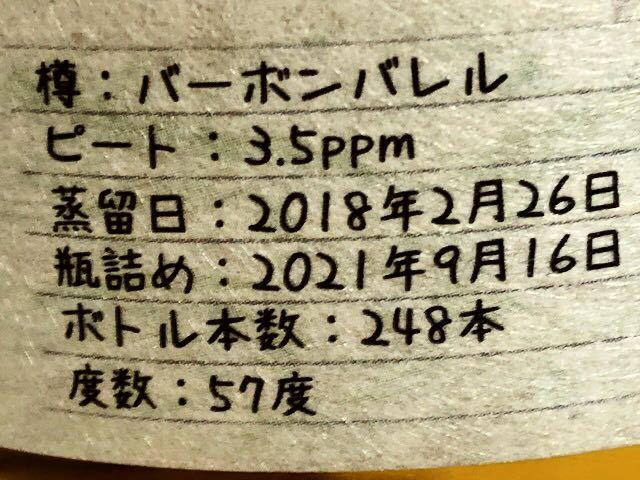 樽：バーボンバレル
ピート：3.5ppm
蒸留日：2018年2月26日
瓶詰め：2021年9月16日
ボトル本数：248本
度数：57度